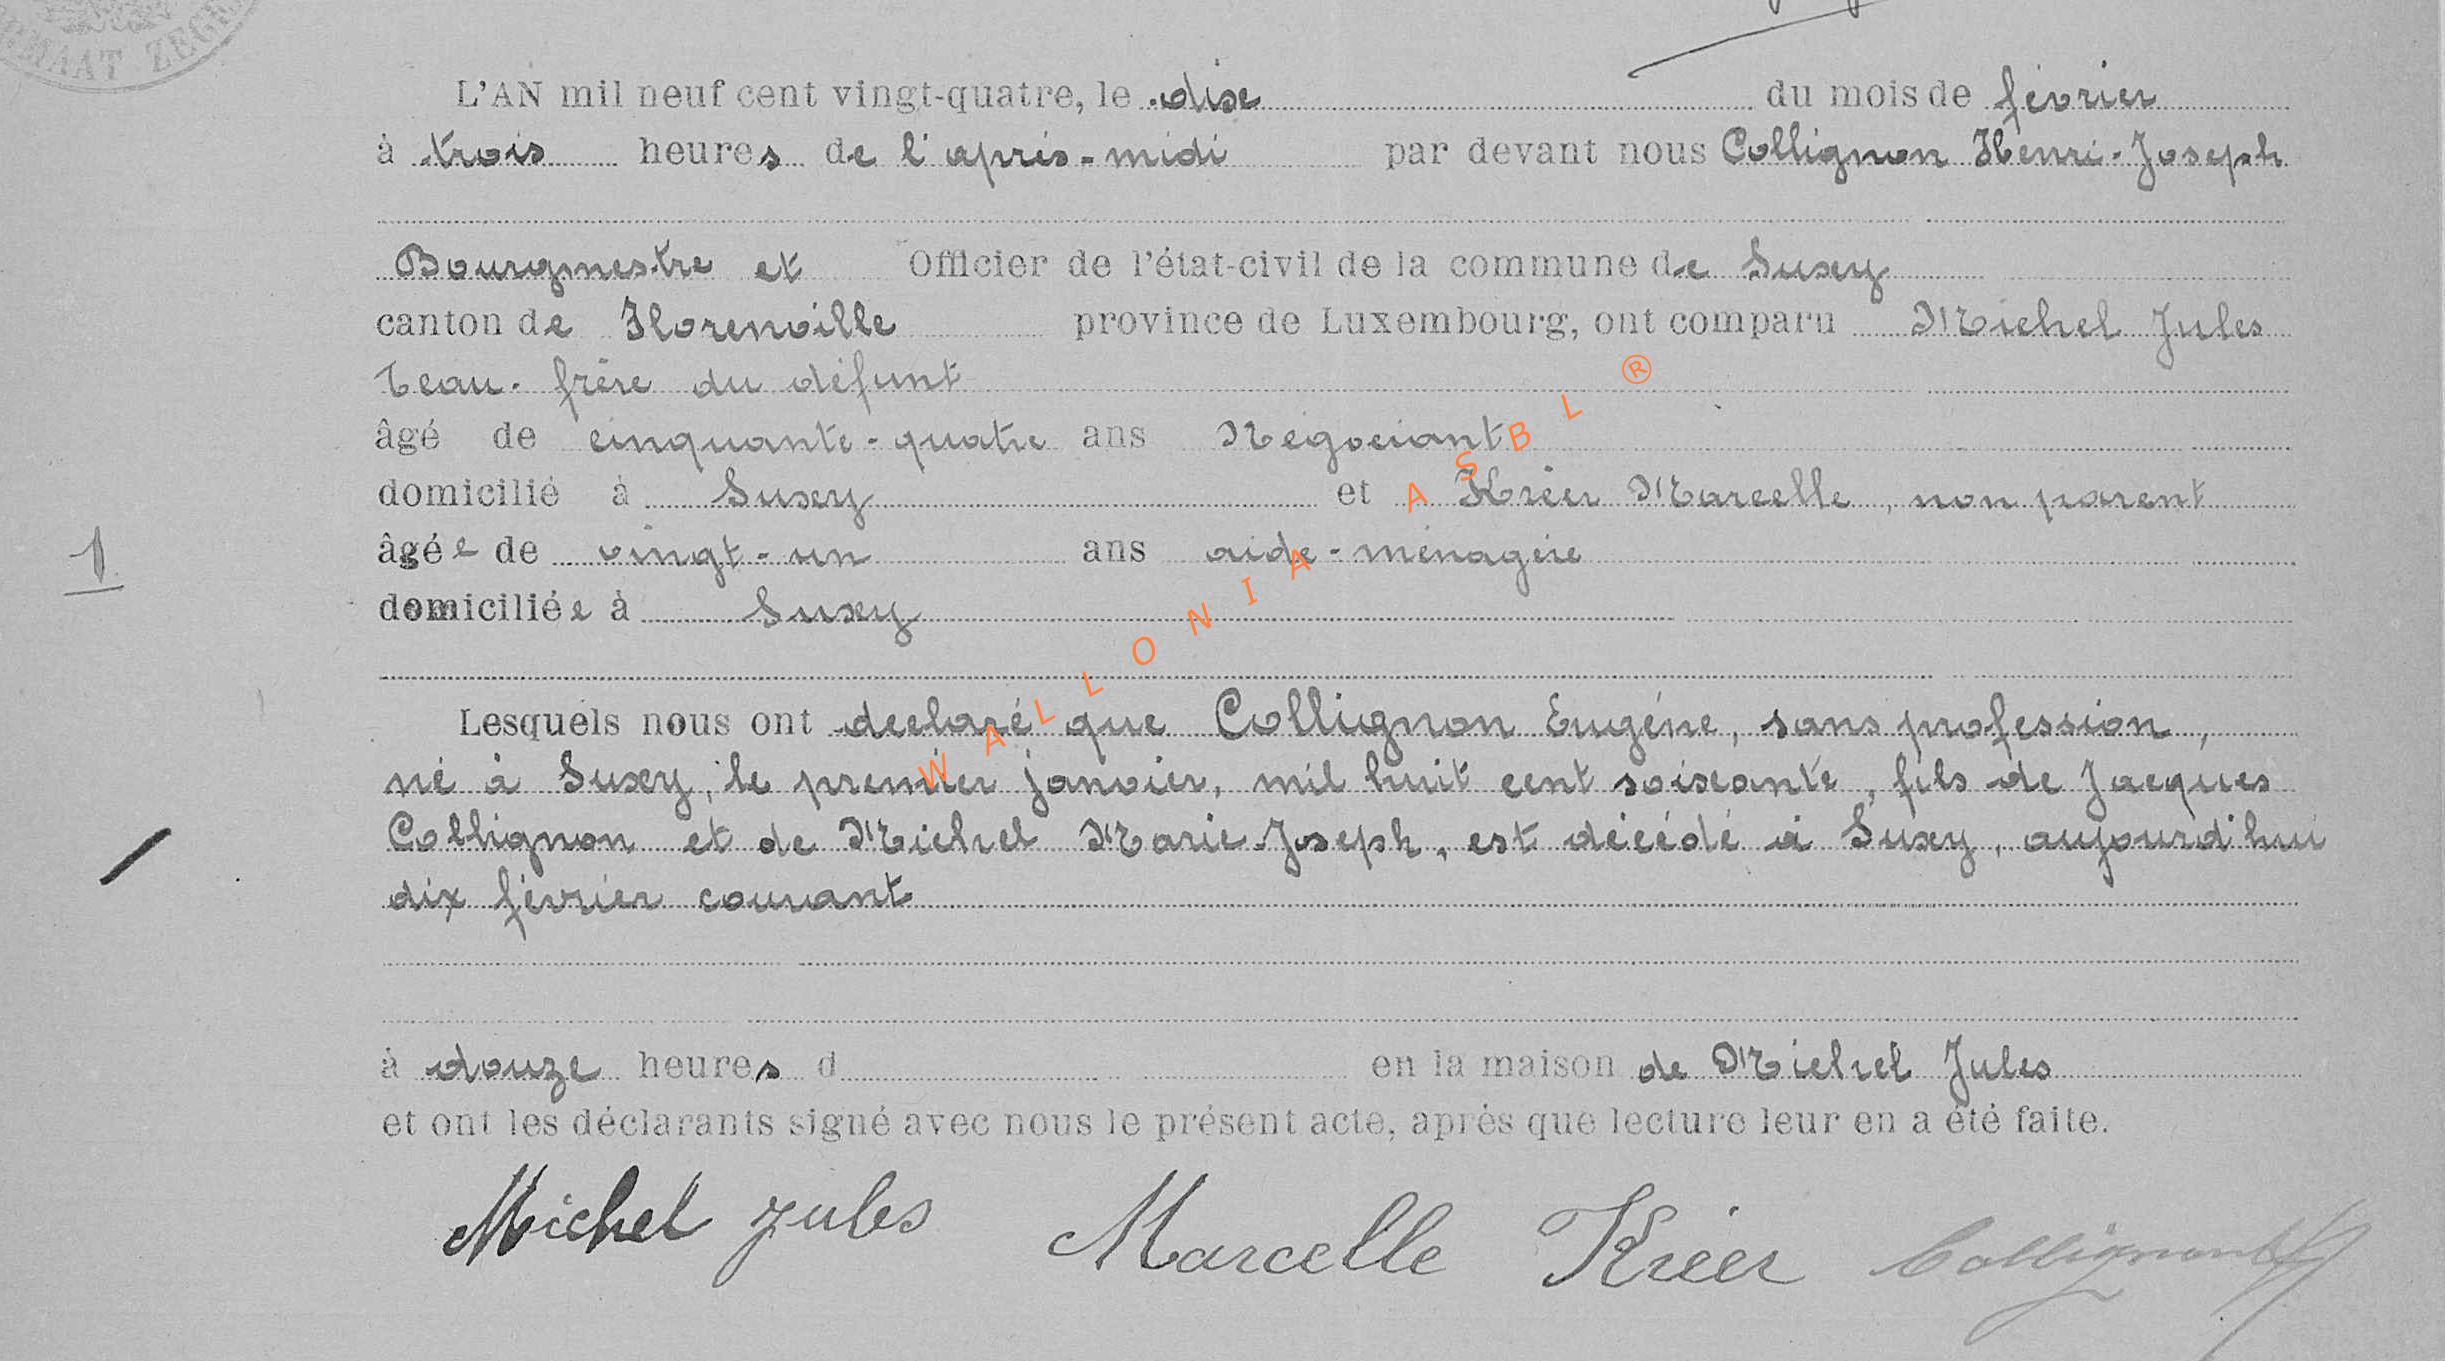 L'AN mil neuf cent vingt-quatre, le dix du mois de février
à trois heures de l'après-midi par devant nous Collignon Henri-Joseph
Bourgmestre et Officier de l'état-civil de la commune de Suxy
canton de Florenville province de Luxembourg, ont comparu Michel Jules
beau-frère du défunt
âgé de cinquante-quatre ans Négociant
domicilié à Suxy et Krier Marcelle, non parent
1
âgée de vingt-un ans aide-ménagère
domiciliée à Suxy
Lesquels nous ont declaré que Collignon Eugène, sans profession,
né à Suxy, le premier janvier, mil huit cent soixante, fils de Jacques
Collignon et de Michel Marie-Joseph, est décédé à Suxy, aujourd'hui
dix février courant
à douze heures d en la maison de Michel Jules
et ont les déclarants signé avec nous le présent acte, après que lecture leur en a été faite.
Michel Jules Marcelle Krier Collignon
WALLONIA ASBL ®